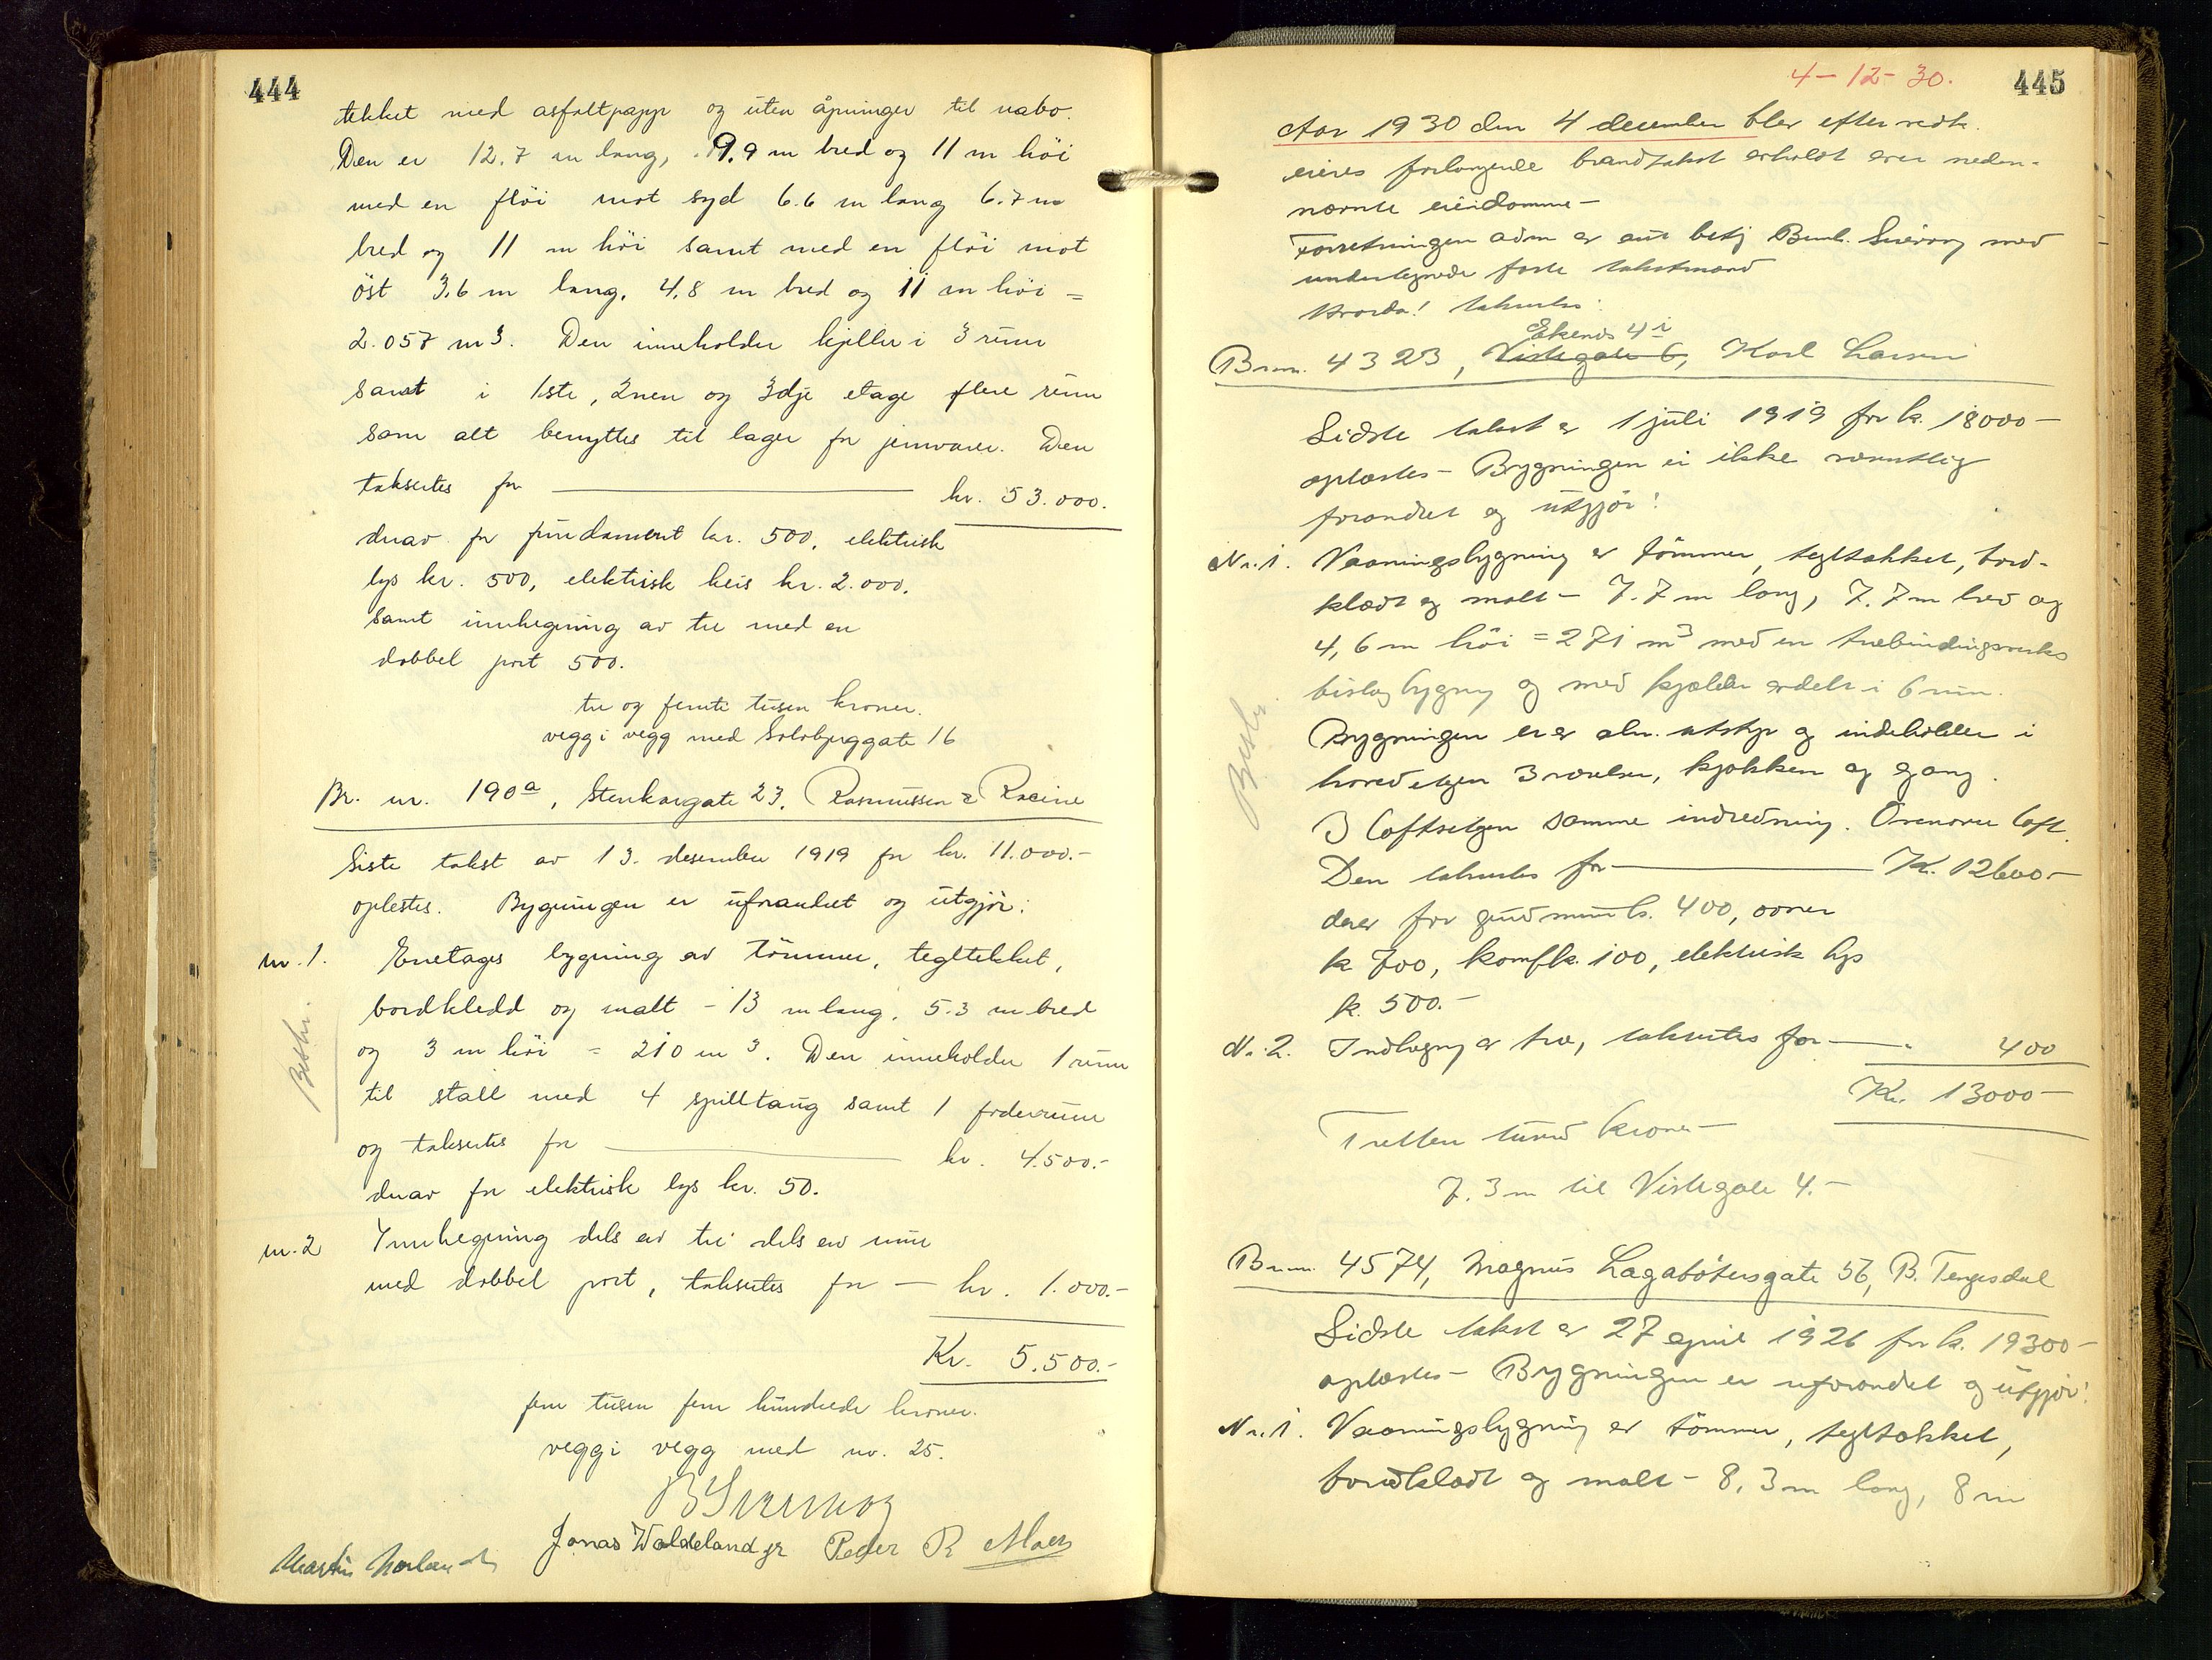 444
tekket med asfaltpapp og uten åpninger til nabo.
Den er 12.7 m lang, 9.9 m bred og 11 m höi
med en flöi mot syd 6.6 m lang 6.7 m
bred og 11 m höi samt med en flöi mot
öst 3,6 m lang, 4,8 m bred og 11 m höi =
2.057 m3. Den inneholder kjeller i 3 rum
samt i 1ste, 2nen og 3dje etage flere rum
som alt benyttes til lager for jernvarer. Den
takseres for kr. 53.000.
derav for fundament kr. 500, elektrisk
lys kr. 500, elektrisk heis kr. 2.000,
samt innhegning av tre med en
dobbel port 500.
tre og femti tusen kroner.
vegg i vegg med Solobjerggate 16
Br. nr. 190a, Stenkargate 23, Rasmussen & Racine
Siste takst av 13. desember 1919 for kr. 11.000.-
oplestes. Bygningen er uforandret og utgjør:
nr. 1. Enetages bygning av tömmer, tegltekket,
bordkledd og malt - 13 m lang, 5.3 m bred
og 3 m höi = 210 m3. Den inneholder 1 rum
til stall med 4 spilltaug samt 1 foderrum
og takseres for kr. 4.500.-
derav for elektrisk lys kr. 50.
nr. 2 Innhegning dels av tre dels av mur
med dobbel port, takseres for — kr. 1.000.-
Kr. 5.500.-
fem tusen fem hundrede kroner.
vegg i vegg med nr. 25.
Jonas Waldeland jr Peder R Moen
4-12-30.
445
Aar 1930 den 4 december blev efter vedk.
eieres forlangende brandtakst avholdt over neden-
nævnte eiendomme -
Forretningen adm av aut bestj Bernh. med
undertegnede faste takstmænd
Hvorda! takseres:
Ekenes 4
Br nr. 4323, Vistegate 6, Karl Larsen
Sidste takst av 1 juli 1919 for kr. 18000-
oplæstes - Bygningen er ikke væsentlig
forandret og utgjör:
Nr. 1. Vaaningsbygning av tömmer, tegltækket, bord-
klædt og malt - 7.7 m lang, 7.7 m bred og
4,6 m höi = 271 m3 med en træbindingsverks
bislag bygning og med kjælder avdelt i 6 rum.
Bygningen er av alm. utstyr og indeholder i
hovedetagen 3 værelser, kjøkken og gang.
I loftsetagen samme indredning. Ovenover loft.
Den takseres for Kr. 12600-
derav for grundmur kr. 400, ovner
kr 700, komf kr. 100, elektrisk lys
kr. 500.-
Nr. 2. Indhegning av træ, takseres for — 400
Kr. 13000-
Tretten tusind kroner -
7.3 m til Vistegate 4.-
Br nr. 4574, Magnus Lagabøtersgate 56, B. Tengesdal
Sidste takst av 27 april 1926 for kr. 19300-
oplæstes - Bygningen er uforandret og utgjör:
Nr. 1. Vaaningsbygning av tömmer, tegltækket,
bordklædt og malt - 8,3 m lang, 8 m